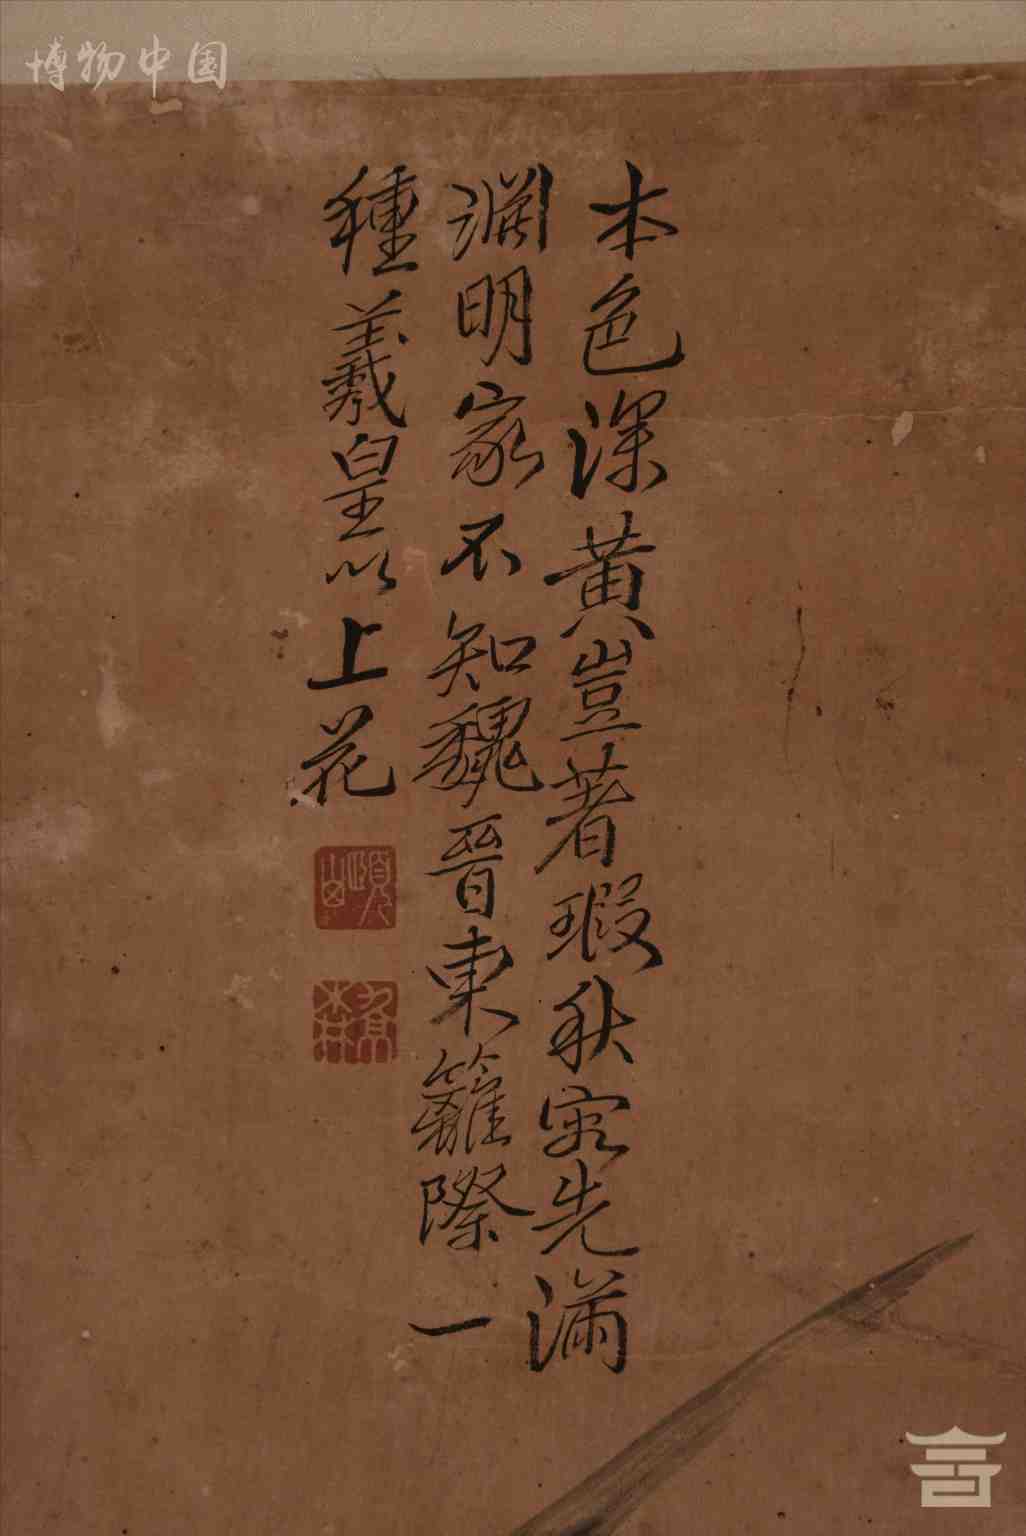 博物中国
本色深黄豈著瑕秋容先滿
淵明家不知魏晉東籬際一
種羲皇以上花